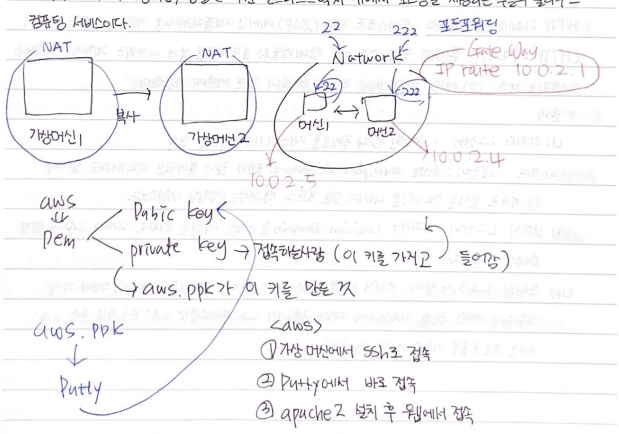 컴퓨팅 서비스이다.
NAT
가상머신1
복사
NAT
가상머신2
22
222
포트포워딩
Natwork
22
222
머신1
머신2
Gate Way
IP route 10.0.2.1
10.0.2.5
10.0.2.4
aws
pem
Pubic key
private key → 접속하는사람 (이 키를 가지고 들어감)
→ aws.ppk가 이 키를 만든 것
aws.ppk
Putty
<aws>
① 가상 머신에서 ssh로 접속
② Putty에서 바로 접속
③ apache2 설치 후 웹에서 접속